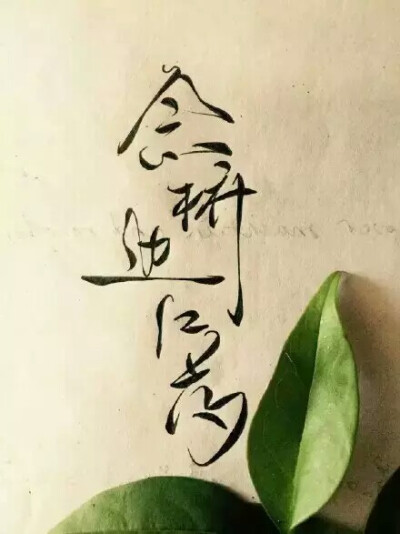 念桥边红药